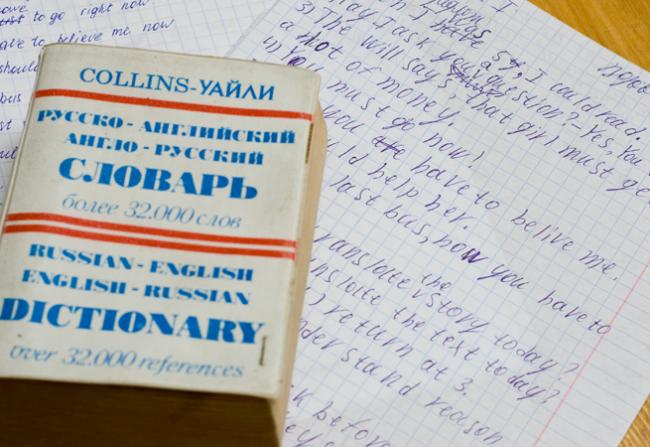 to go right now
ave to believe me now
should
bus
COLLINS-УАЙЛИ
РУССКО-АНГЛИЙСКИЙ
АНГЛО-РУССКИЙ
СЛОВАРЬ
более 32.000 слов
RUSSIAN-ENGLISH
ENGLISH-RUSSIAN
DICTIONARY
over 32.000 references
I was 5, I could read.
May I ask you a question? Yes, You
3) The Will says, that girl must get
a lot of money.
4) You must go now!
you have to belive me.
ld help her.
last bus, now you have to
translate the story today?
nslate the text today?
) return at 3.
nderstand reason
before